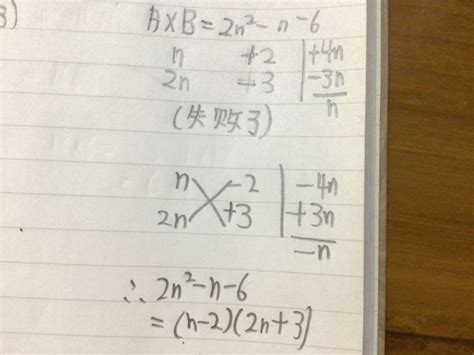 3)
A×B=2n²-n-6
n +2 | +4n
2n -3 | -3n
n
(失败了)
n -2 | -4n
2n +3 | +3n
-n
∴ 2n²-n-6
=(n-2)(2n+3)